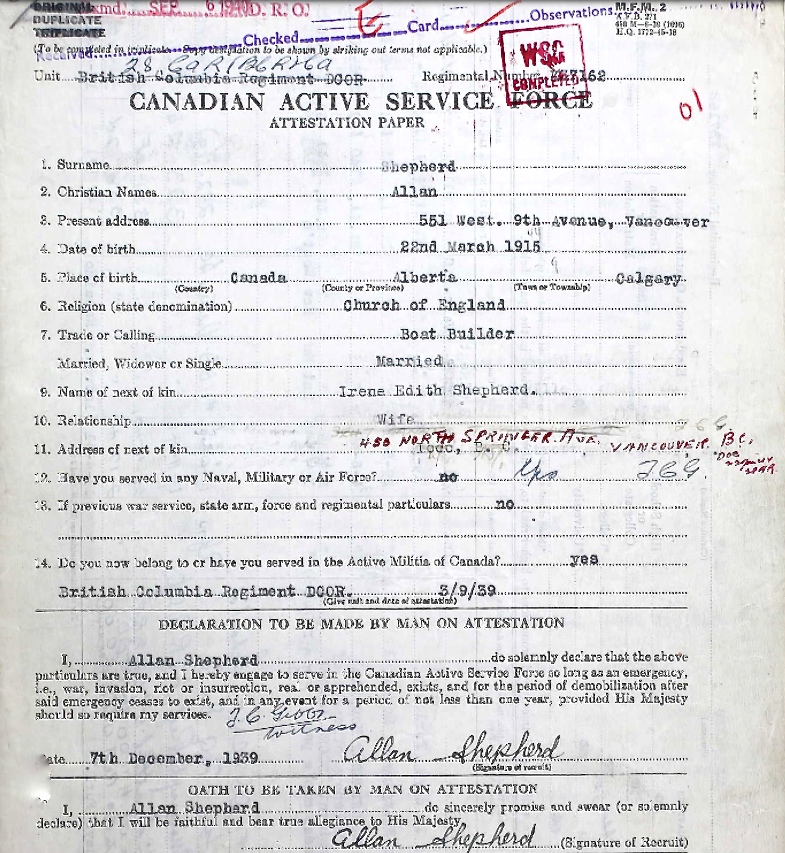 ORIGINAL
DUPLICATE
TRIPLICATE
SEP 6 1940 D. R. O.
Received Checked Card Observations
M.F.M. 2
H.Q. 1772-45-18
(To be completed in triplicate. Copy to be shown by striking out terms not applicable.)
28
Unit British Columbia Regiment DCOR. Regimental Number
WSG
COMPLETED
CANADIAN ACTIVE SERVICE FORCE
ATTESTATION PAPER
01
1. Surname Shepherd
2. Christian Names Allan
3. Present address 551 West. 9th Avenue, Vancouver
4. Date of birth 22nd March 1915
5. Place of birth Canada Alberta Calgary
(Country) (County or Province) (Town or Township)
6. Religion (state denomination) Church of England
7. Trade or Calling Boat Builder
Married, Widower or Single Married
9. Name of next of kin Irene Edith Shepherd.
10. Relationship Wife
450 NORTH SPRINGER AVE. VANCOUVER B.C.
11. Address of next of kin
12. Have you served in any Naval, Military or Air Force? no Yes JCG
13. If previous war service, state arm, force and regimental particulars no
14. Do you now belong to or have you served in the Active Militia of Canada? yes
British Columbia Regiment DCOR. 3/9/39
(Give unit and date of attestation)
DECLARATION TO BE MADE BY MAN ON ATTESTATION
I, Allan Shepherd do solemnly declare that the above
particulars are true, and I hereby engage to serve in the Canadian Active Service Force so long as an emergency,
i.e., war, invasion, riot or insurrection, real or apprehended, exists, and for the period of demobilization after
said emergency ceases to exist, and in any event for a period of not less than one year, provided His Majesty
should so require my services. J.C. Gibbs
Witness
Date 7th December, 1939 Allan Shepherd
(Signature of recruit)
OATH TO BE TAKEN BY MAN ON ATTESTATION
I, Allan Shepherd do sincerely promise and swear (or solemnly
declare) that I will be faithful and bear true allegiance to His Majesty.
Allan Shepherd (Signature of Recruit)